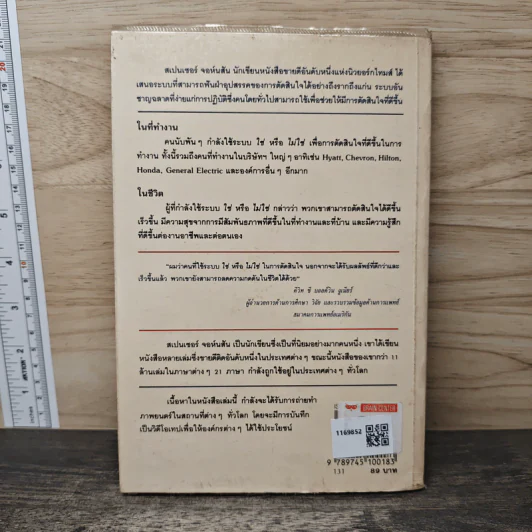 สเปนเซอร์ จอห์นสัน นักเขียนหนังสือขายดีอันดับหนึ่งแห่งนิวยอร์กไทมส์ ได้
เสนอระบบที่สามารถฟันฝ่าอุปสรรคของการตัดสินใจได้อย่างถึงรากถึงแก่น ระบบอัน
ชาญฉลาดที่ง่ายแก่การปฏิบัติซึ่งคนโดยทั่วไปสามารถใช้เพื่อช่วยให้มีการตัดสินใจที่ดีขึ้น
ในที่ทำงาน
คนนับพัน ๆ กำลังใช้ระบบ ใช่ หรือ ไม่ใช่ เพื่อการตัดสินใจที่ดีขึ้นในการ
ทำงาน ทั้งนี้รวมถึงคนที่ทำงานในบริษัทฯ ใหญ่ ๆ อาทิเช่น Hyatt, Chevron, Hilton,
Honda, General Electric และองค์การอื่น ๆ อีกมาก
ในชีวิต
ผู้ที่กำลังใช้ระบบ ใช่ หรือ ไม่ใช่ กล่าวว่า พวกเขาสามารถตัดสินใจได้ดีขึ้น
เร็วขึ้น มีความสุขจากการมีสัมพันธภาพที่ดีขึ้นในที่ทำงานและที่บ้าน และมีความรู้สึก
ที่ดีขึ้นต่องานอาชีพและต่อตนเอง
"ผมว่าคนที่ใช้ระบบ ใช่ หรือ ไม่ใช่ ในการตัดสินใจ นอกจากจะได้รับผลลัพธ์ที่ดีกว่าและ
เร็วขึ้นแล้ว พวกเขายังสามารถลดความกดดันในชีวิตได้ด้วย"
ดีวิท ซี บอลด์วิน จูเนียร์
ผู้อำนวยการด้านการศึกษา วิจัย และรวบรวมข้อมูลด้านการแพทย์
สมาคมการแพทย์อเมริกัน
สเปนเซอร์ จอห์นสัน เป็นนักเขียนซึ่งเป็นที่นิยมอย่างมากคนหนึ่ง เขาได้เขียน
หนังสือหลายเล่มซึ่งขายดีติดอันดับหนึ่งในประเทศต่าง ๆ ขณะนี้หนังสือของเขากว่า 11
ล้านเล่มในภาษาต่าง ๆ 21 ภาษา กำลังถูกใช้อยู่ในประเทศต่าง ๆ ทั่วโลก
เนื้อหาในหนังสือเล่มนี้ กำลังจะได้รับการถ่ายทำ
ภาพยนตร์ในสถานที่ต่าง ๆ ทั่วโลก โดยจะมีการบันทึก
เป็นวิดีโอเทปเพื่อให้องค์กรต่าง ๆ ได้ใช้ประโยชน์
1169852
9 789745 100183
131 89 บาท